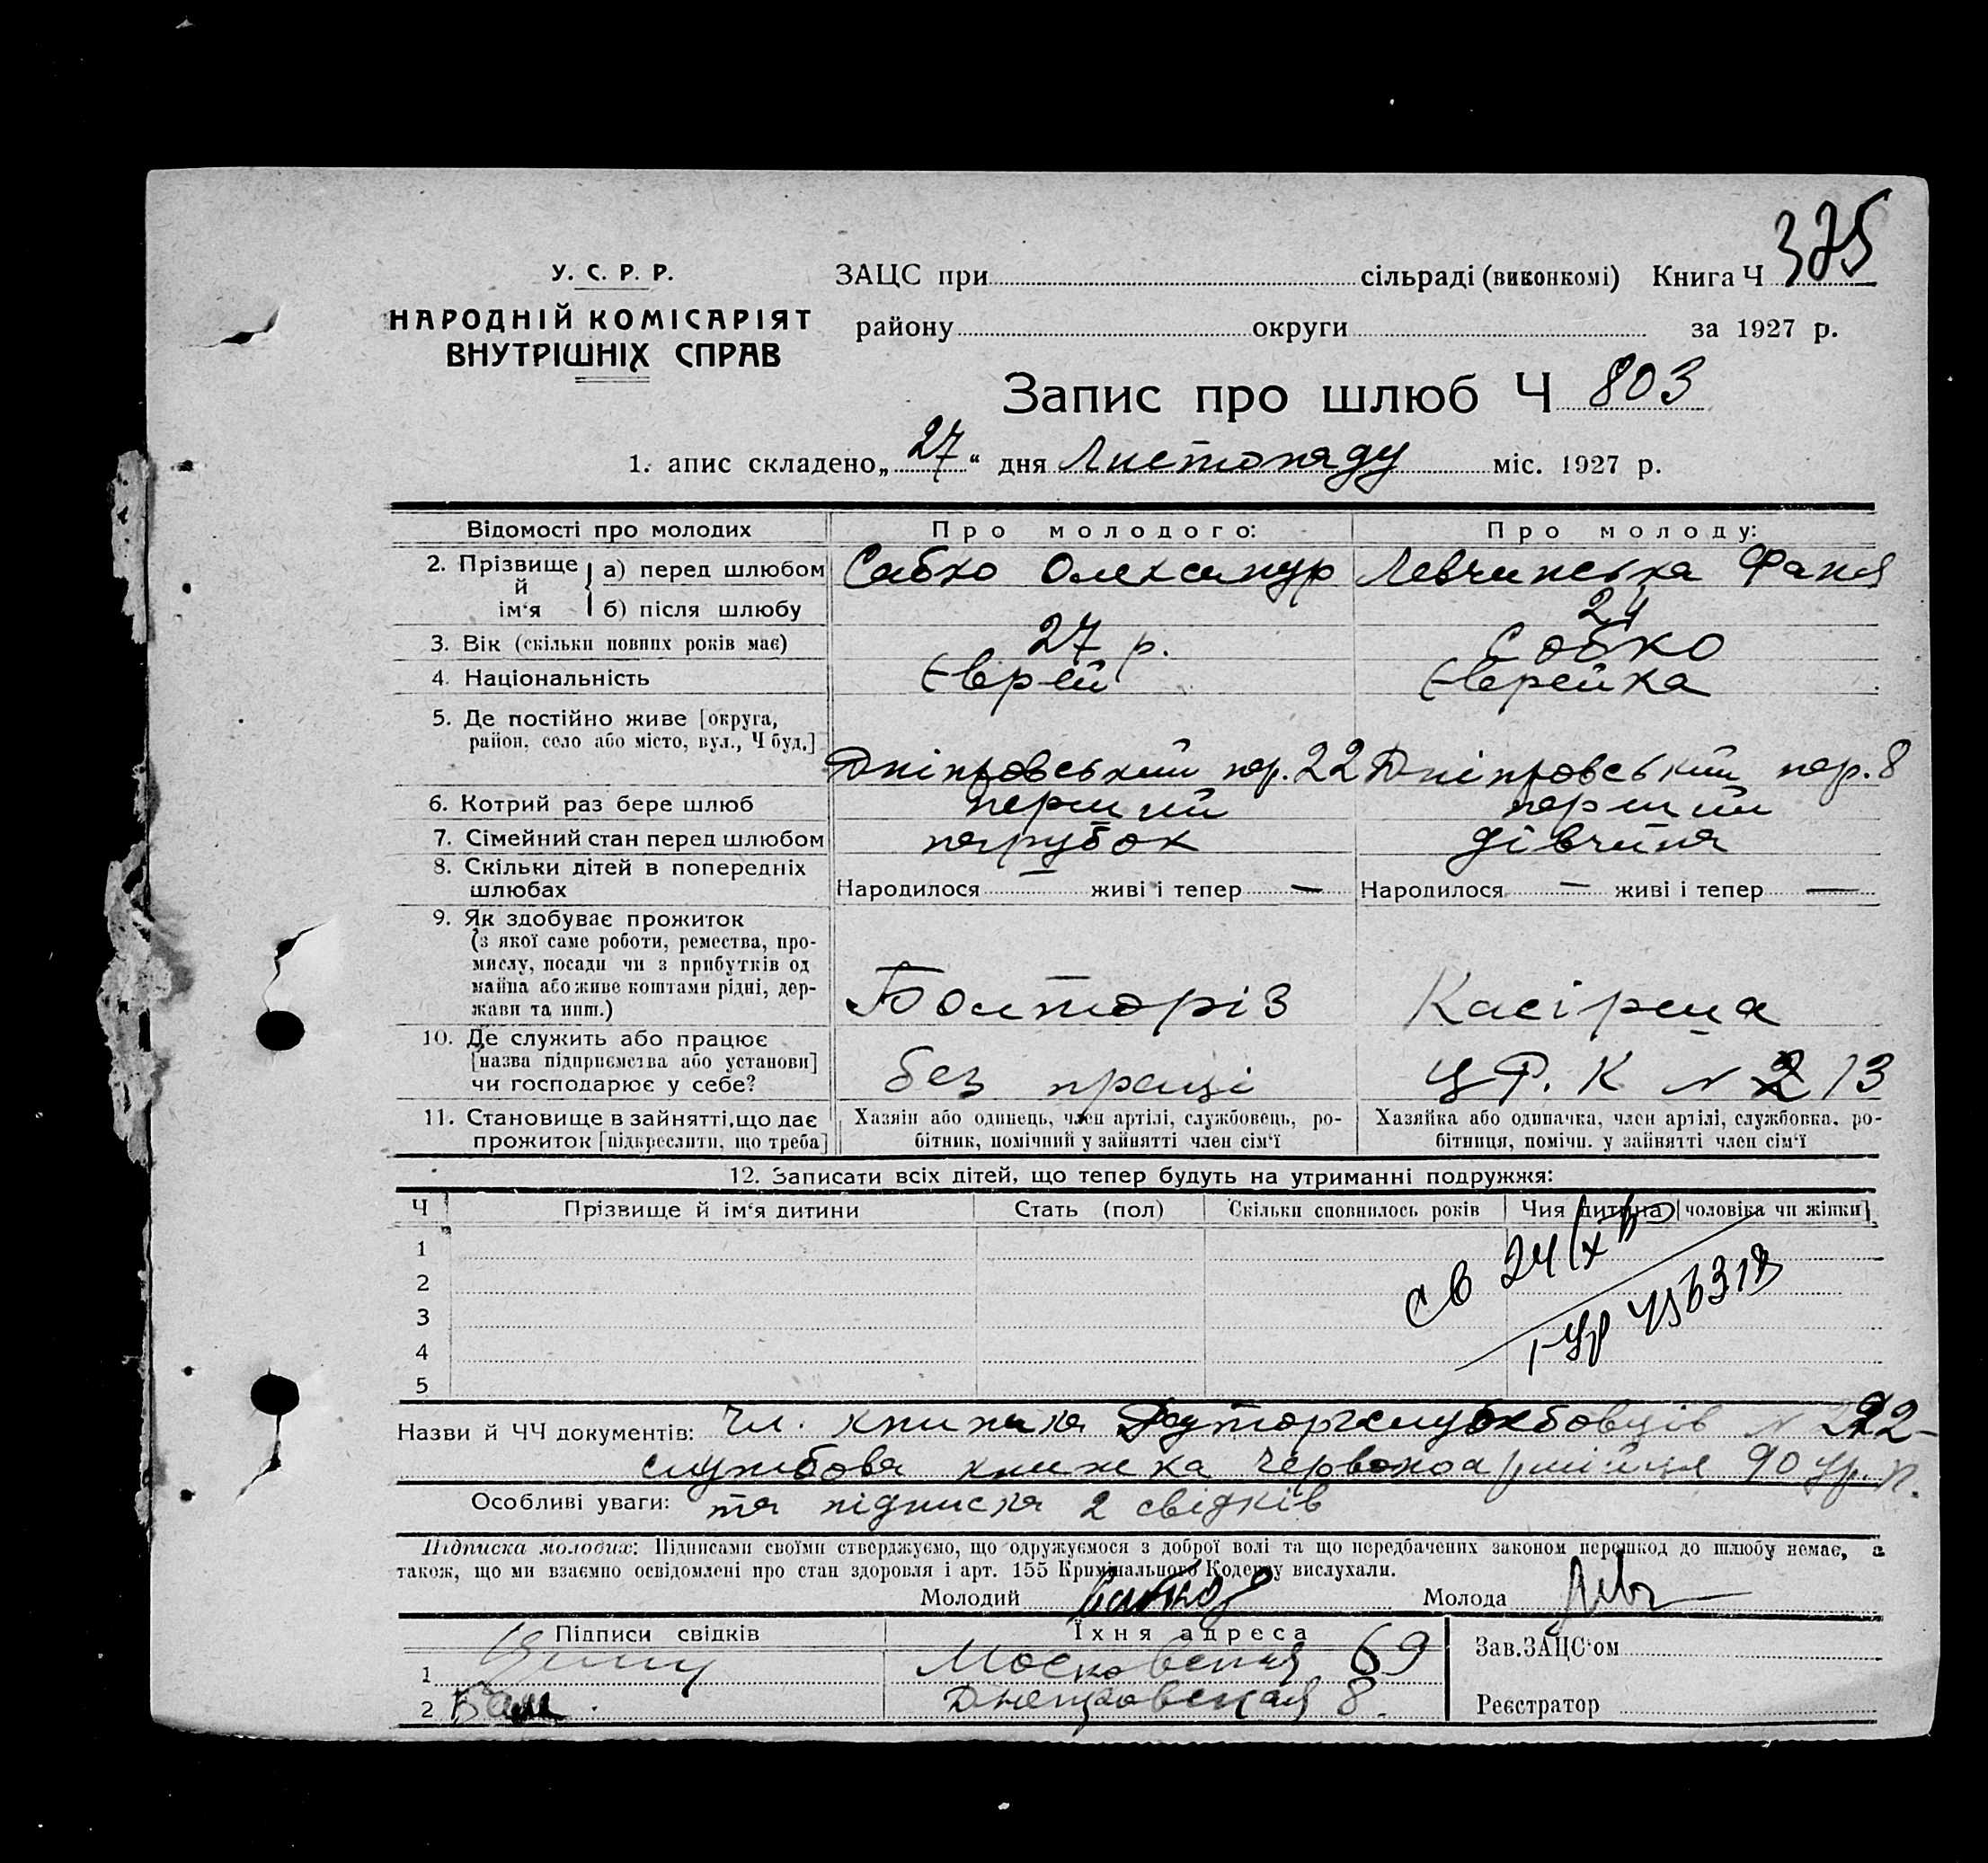 У. С. Р. Р.
НАРОДНІЙ КОМІСАРІЯТ
ВНУТРІШНІХ СПРАВ
ЗАЦС при сільраді (виконкомі) Книга Ч 375
району округи за 1927 р.
Запис про шлюб Ч 803
1. апис складено „27“ дня Листопаду міс. 1927 р.
Відомості про молодих Про молодого: Про молоду:
2. Прізвище й ім‘я
а) перед шлюбом Сабко Олександр Левчинська Фаня
б) після шлюбу 24
3. Вік (скільки повних років має) 27 р. Собко
4. Національність Єврей Єврейка
5. Де постійно живе [округа,
район, село або місто, вул., Ч буд.]
Дніпровський пер. 22 Дніпровський пер. 8
6. Котрий раз бере шлюб перший перший
7. Сімейний стан перед шлюбом парубок дівчина
8. Скільки дітей в попередніх
шлюбах Народилося — живі і тепер — Народилося — живі і тепер —
9. Як здобуває прожиток
(з якої саме роботи, ремества, про-
мислу, посади чи з прибутків од
майна або живе коштами рідні, дер-
жави та инш.) Болторіз Касірша
10. Де служить або працює
[назва підприємства або установи]
чи господарює у себе? без праці Ц.Р.К N 213
11. Становище в зайнятті, що дає
прожиток [підкреслити, що треба]
Хазяін або одинець, член артілі, службовець, ро-
бітник, помічний у зайнятті член сім‘ї
Хазяйка або одиначка, член артілі, службовка, ро-
бітниця, помічн. у зайнятті член сім‘ї
12. Записати всіх дітей, що тепер будуть на утриманні подружжя:
Ч Прізвище й ім‘я дитини Стать (пол) Скільки сповнилось років Чия дитина [чоловіка чи жінки]
1
2
3
4
5
Назви й ЧЧ документів: Чл. книжка N
службова книжка червоноармійця 90
Особливі уваги: та підписка 2 свідків
Підписка молодих: Підписами своїми стверджуємо, що одружуємося з доброї волі та що передбачених законом перешкод до шлюбу немає, а
також, що ми взаємно освідомлені про стан здоровля і арт. 155 Кримінального Кодексу вислухали.
Молодий Молода
Підписи свідків Їхня адреса Зав. ЗАЦС‘ом
1 Московская 69
2 Днепровская 8. Реєстратор